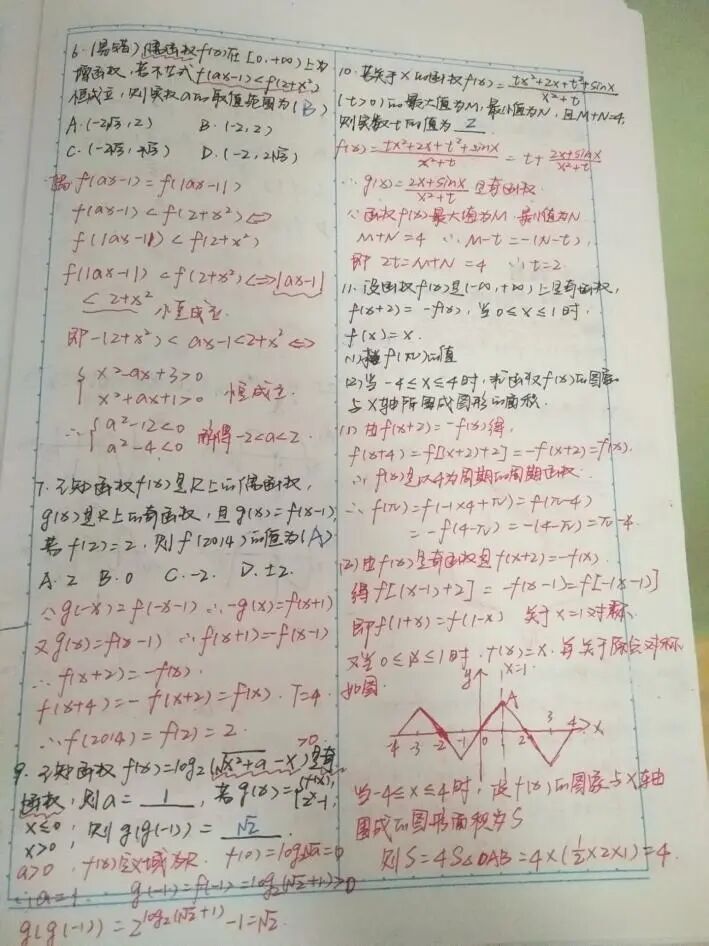 6.(易错)偶函数f(x)在[0,+∞)上为
增函数,若不等式f(ax-1)<f(2+x²)
恒成立,则实数a的取值范围为(B)
A.(-2√3,2) B.(-2,2)
C.(-2√3,2√3) D.(-2,2√3)
f(ax-1)=f(|ax-1|)
f(ax-1)<f(2+x²)⇔
f(|ax-1|)<f(2+x²)
f(|ax-1|)<f(2+x²)⇔|ax-1|
<2+x² 恒成立.
即-(2+x²)<ax-1<2+x²⇔
{x²-ax+3>0
x²+ax+1>0 恒成立.
∴{a²-12<0
a²-4<0 解得-2<a<2.
7.已知函数f(x)是R上的偶函数,
g(x)是R上的奇函数,且g(x)=f(x-1),
若f(2)=2,则f(2014)的值为(A)
A.2 B.0 C.-2. D.±2.
∵g(-x)=f(-x-1) ∴-g(x)=f(x+1)
又g(x)=f(x-1) ∴f(x+1)=-f(x-1)
∴f(x+2)=-f(x).
f(x+4)=-f(x+2)=f(x). T=4.
∴f(2014)=f(2)=2.
>0
9.已知函数f(x)=log2(√x²+a-x)是奇
函数,则a=1,若g(x)={f(x),
2^x-1,
x≤0;
x>0, 则g(g(-1))=√2
a>0 f(x)定义域为R. f(0)=log2√a=0
∴a=1. g(-1)=f(-1)=log2(√2+1)>0
g(g(-1))=2^log2(√2+1)-1=√2.
10.若关于x的函数f(x)=(tx²+2x+t²+sinx)/(x²+t)
(t>0)的最大值为M,最小值为N,且M+N=4,
则实数t的值为 2
f(x)=(tx²+2x+t²+sinx)/(x²+t)=t+(2x+sinx)/(x²+t)
∴g(x)=(2x+sinx)/(x²+t)是奇函数.
∵函数f(x)最大值为M.最小值为N
M+N=4 ∴M-t=-(N-t),
即2t=M+N=4 ∴t=2.
11.设函数f(x)是(-∞,+∞)上是奇函数,
f(x+2)=-f(x),当0≤x≤1时,
f(x)=x.
(1)求f(π)的值
(2)当-4≤x≤4时,求函数f(x)的图象
与x轴所围成图形的面积.
(1)由f(x+2)=-f(x)得,
f(x+4)=f[(x+2)+2]=-f(x+2)=f(x).
∴f(x)是以4为周期的周期函数.
∴f(π)=f(-1×4+π)=f(π-4)
=-f(4-π)=-(4-π)=π-4.
(2)由f(x)是奇函数且f(x+2)=-f(x).
得f[(x-1)+2]=-f(x-1)=f[-(x-1)]
即f(1+x)=f(1-x) 关于x=1对称.
又当0≤x≤1时.f(x)=x.且关于原点对称
如图. y x=1.
A
-4 -3 -2 -1 0 1 2 3 4 x
当-4≤x≤4时,设f(x)的图象与x轴
围成的图形面积为S
则S=4S△OAB=4×(½×2×1)=4.